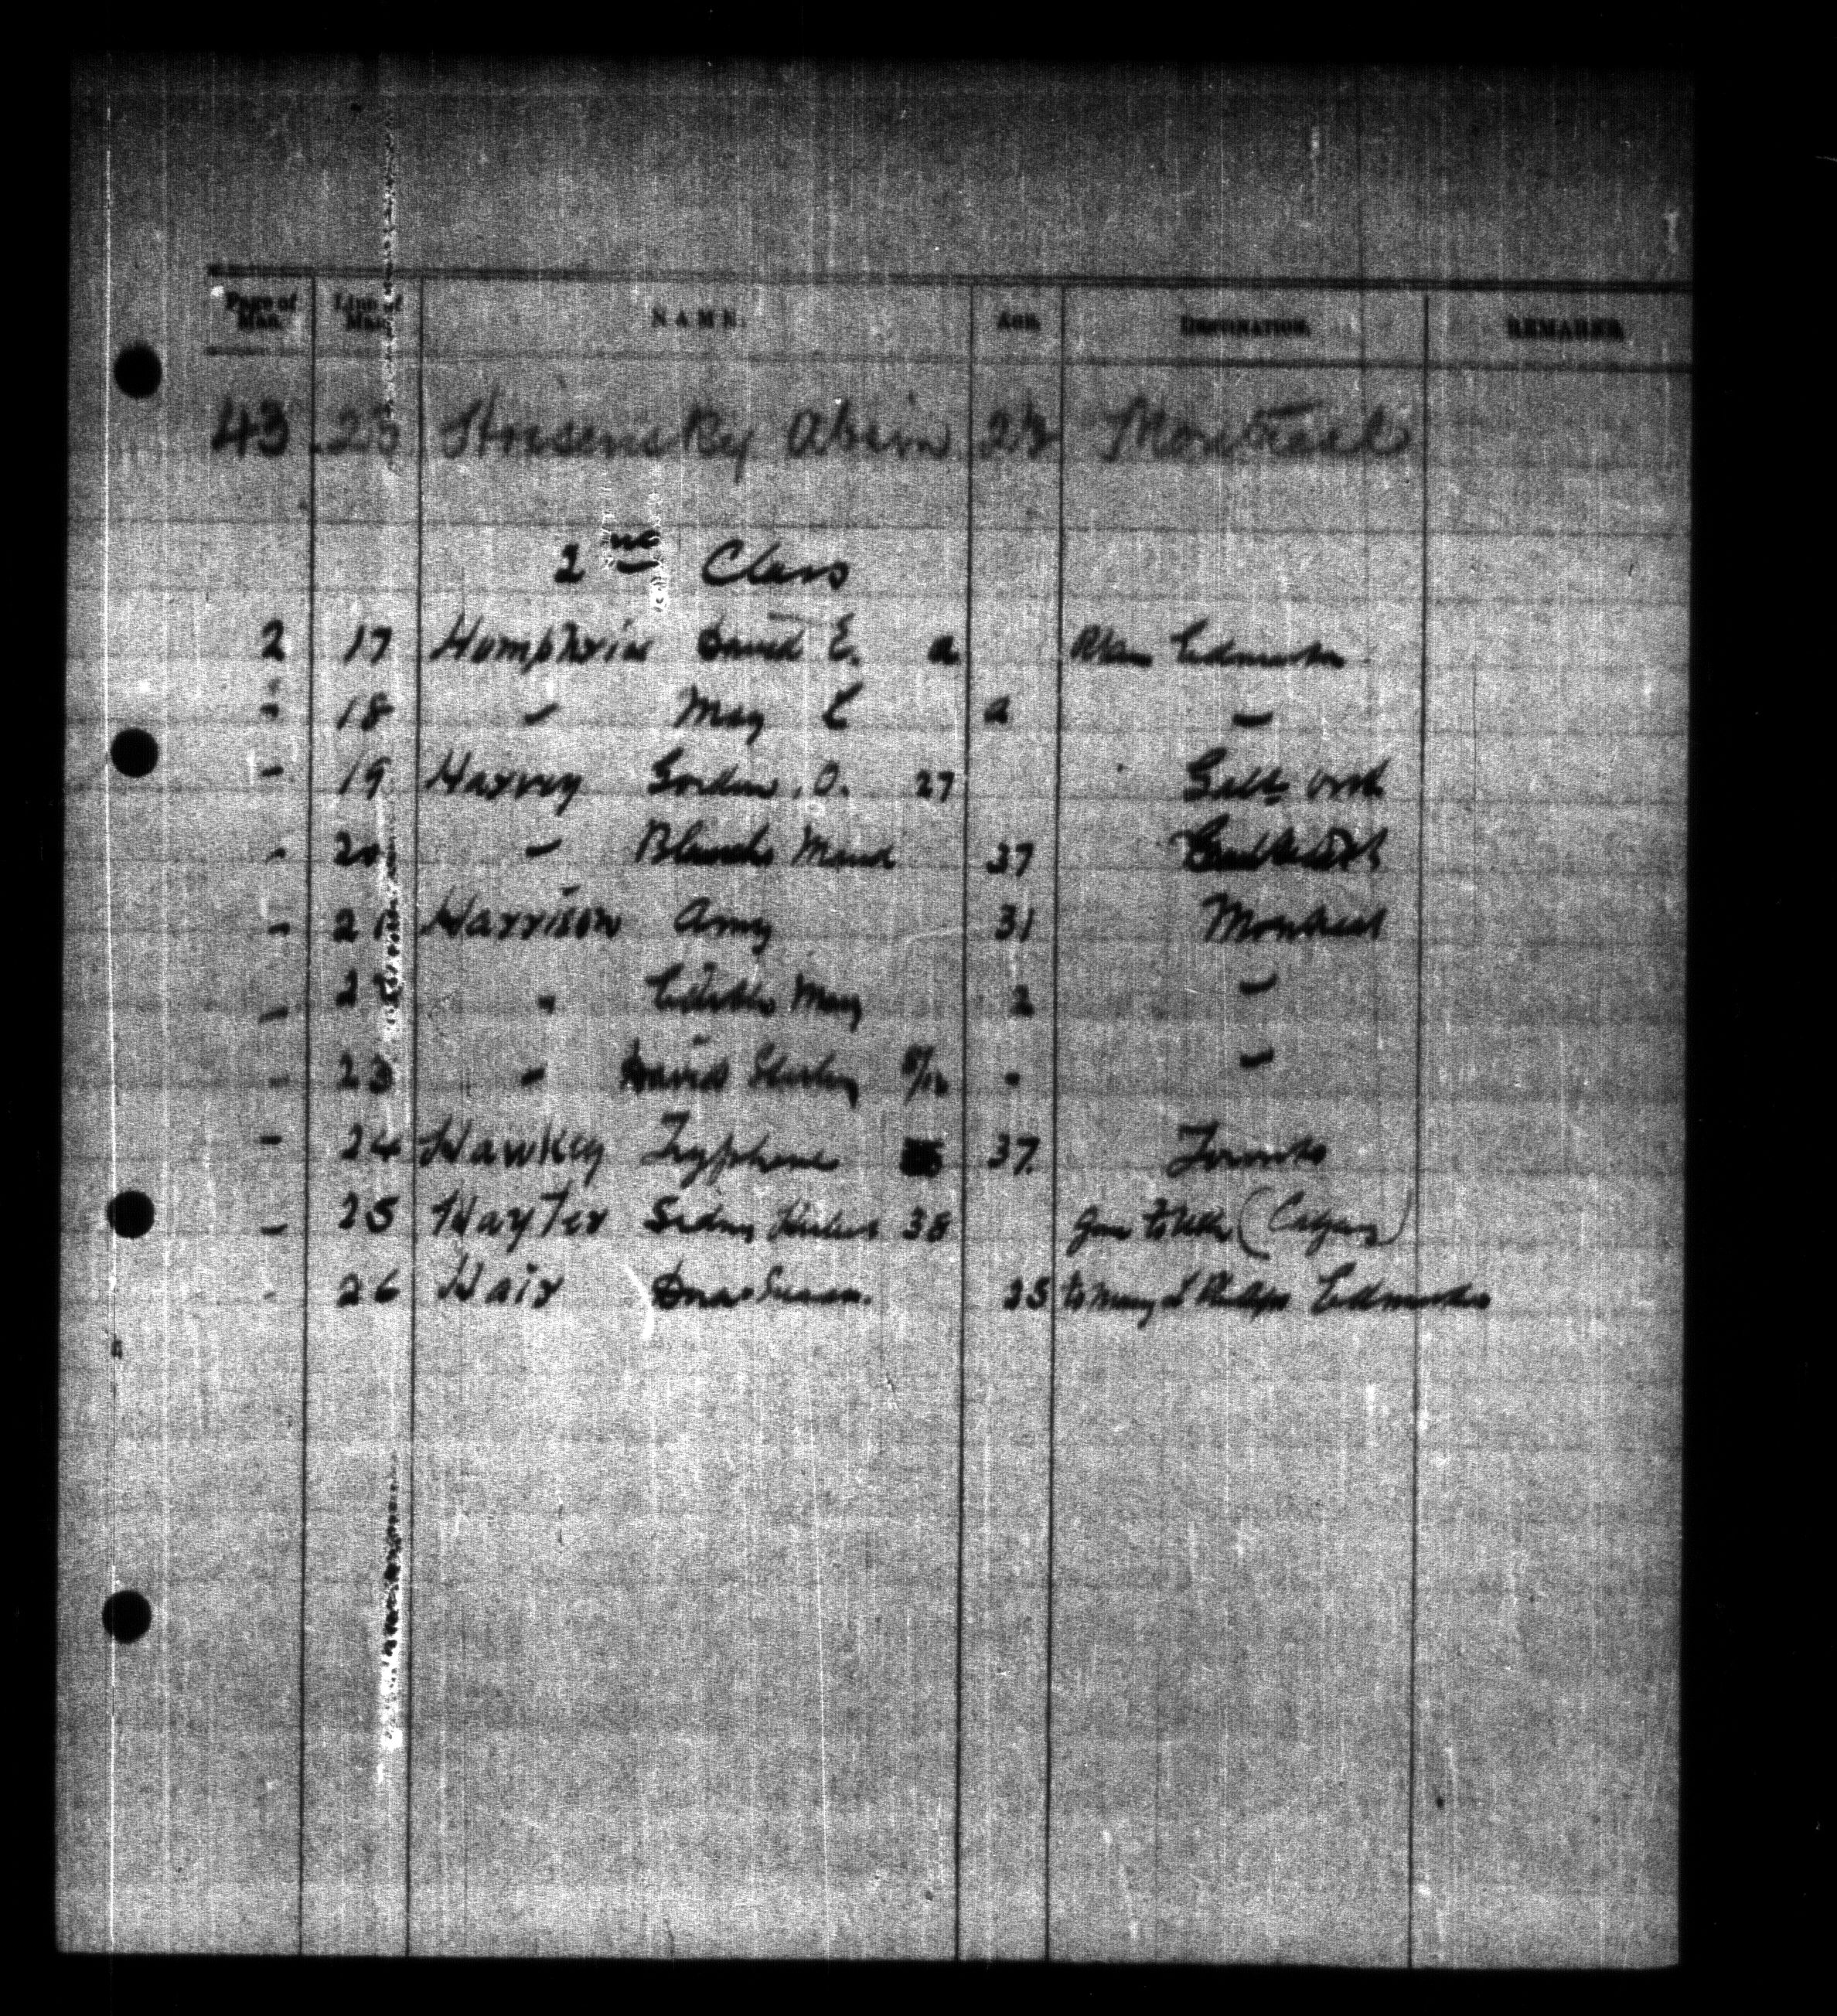 Page of Man. Line of Man. NAME. AGE. DESTINATION. REMARKS
43 23 Abrim 23 Montreal
2nd Class
2 17 Humphries David E. a Edmonton
" 18 " May E a "
" 19 Harvey Gordon. O. 27 Galt Ont
" 20 " Blanche Maud 37
" 21 Harrison Amy 31 Montreal
" 22 " May 2 "
" 23 " David 8/12 " "
" 24 Hawkey Tryphena 37. Toronto
" 25 Hayter Sidney Herbert 38 (Calgary)
" 26 Hair 25 to Phillips Edmonton